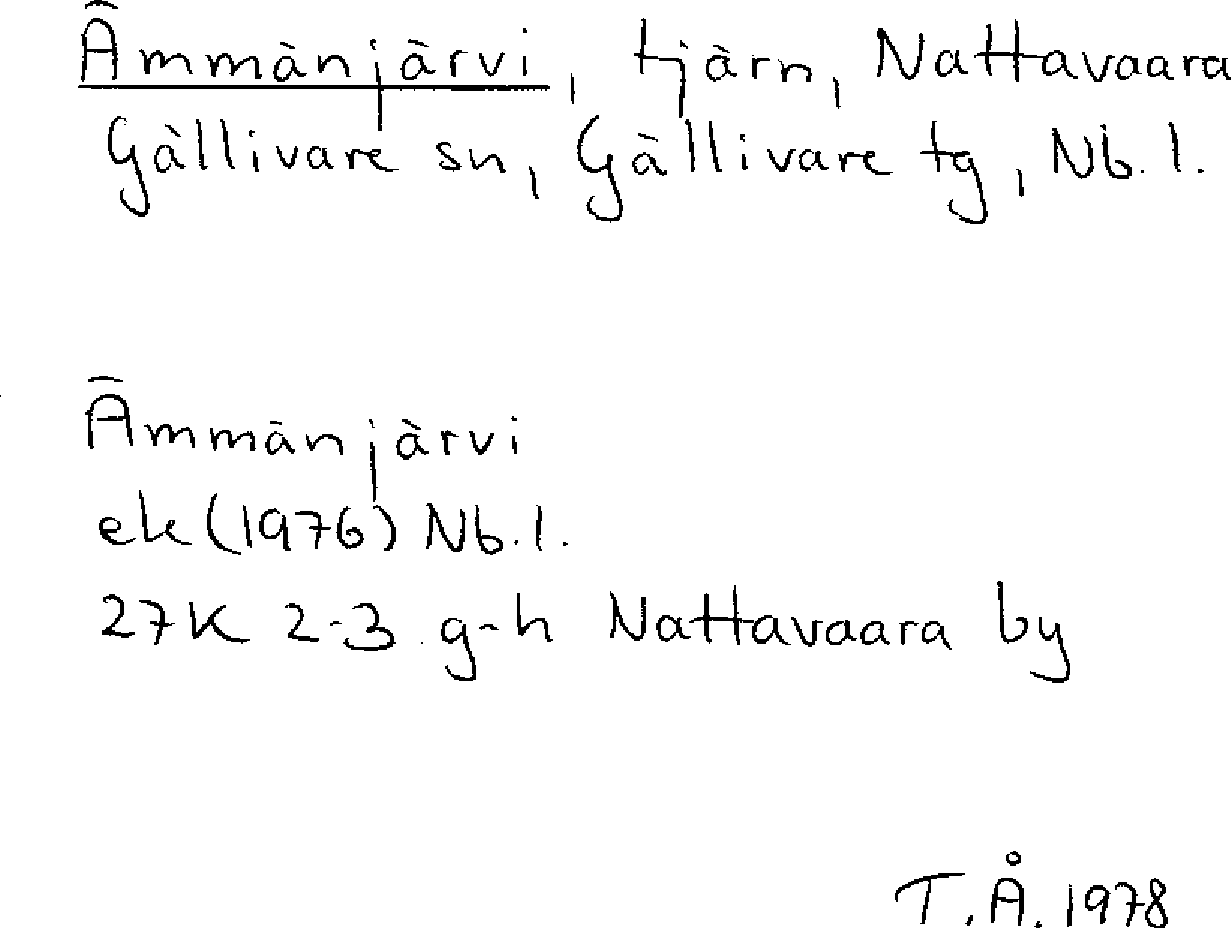 Ämmänjärvi, tjärn, Nattavaara
Gällivare sn, Gällivare tg, Nb. l.
Ämmänjärvi
ek (1976) Nb. l.
27K 2-3 g-h Nattavaara by
T. Å. 1978